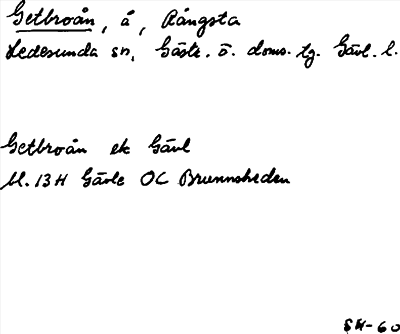 Getbroån, å, Rångsta
Hedesunda sn, Gästr. ö. doms. tg. Gävl. l.
Getbroån ek Gävl
bl. 13H Gävle OC Brunnsheden
SH-60